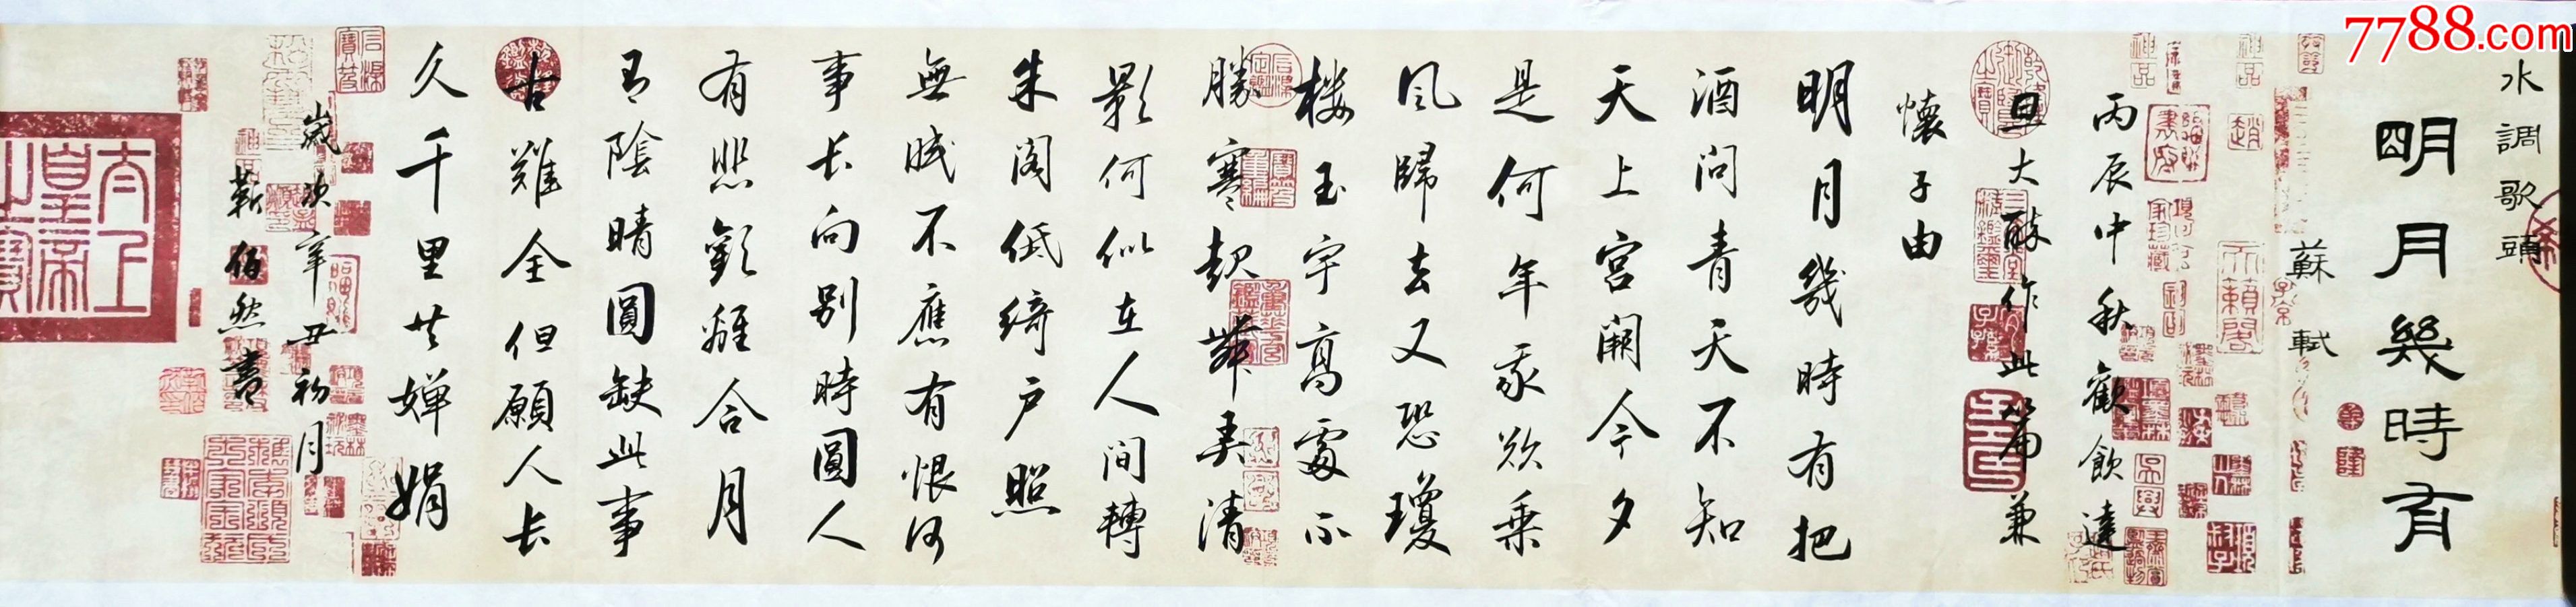 7788.com
水調歌頭
明月幾時有
蘇軾
丙辰中秋歡飲達
旦大醉作此篇兼
懷子由
明月幾時有把
酒問青天不知
天上宮闕今夕
是何年我欲乘
風歸去又恐瓊
樓玉宇高處不
勝寒起舞弄清
影何似在人間轉
朱閣低綺戶照
無眠不應有恨何
事長向別時圓人
有悲歡離合月
有陰晴圓缺此事
古難全但願人長
久千里共嬋娟
歲次辛丑初月
靳佰然書
太上皇帝之寶